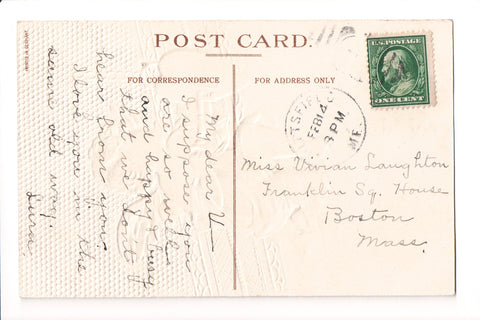 POST CARD.
FOR CORRESPONDENCE
FOR ADDRESS ONLY
U.S. POSTAGE
ONE CENT
FEB 14
3 PM
ME.
Miss Vivian Laughton
Franklin Sq. House
Boston
Mass.
"My dear V—
I suppose you
are so well
and happy & busy
that we don't
hear from you.
I love you in the
same old way.